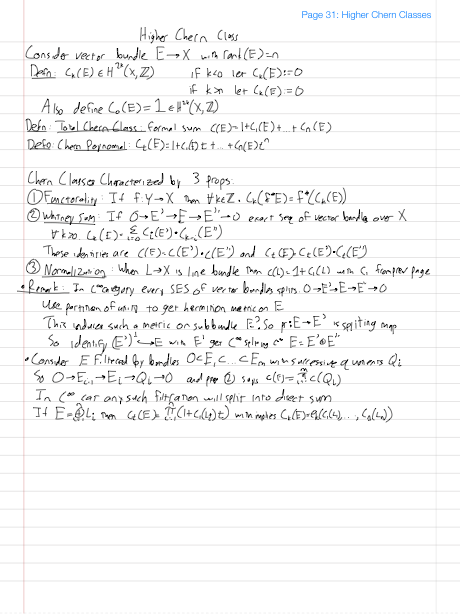 Page 31: Higher Chern Classes
Higher Chern Class
Consider vector bundle E→X with rank(E)=n
Defn: Cₖ(E) ∈ H²ᵏ(X,ℤ) if k<0 let Cₖ(E):=0
if k>n let Cₖ(E):=0
Also define C₀(E)=1∈H⁰(X,ℤ)
Defn: Total Chern Class: formal sum C(E)=1+C₁(E)+...+Cₙ(E)
Defn: Chern Polynomial: Cₜ(E)=1+C₁(E)t+...+Cₙ(E)tⁿ
Chern Classes Characterized by 3 props:
① Functorality: If f:Y→X then ∀k∈ℤ. Cₖ(f*E)=f*(Cₖ(E))
② Whitney Sum: If 0→E'→E→E''→0 exact seq of vector bundles over X
∀k≥0 Cₖ(E)=Σ Cᵢ(E')·Cₖ₋ᵢ(E'')
These identities are C(E)=C(E')·C(E'') and Cₜ(E)=Cₜ(E')·Cₜ(E'')
③ Normalization: When L→X is line bundle then C(L)=1+C₁(L) with C₁ from prev page
• Remark: In C^∞ category every SES of vector bundles splits. 0→E'→E→E''→0
Use partition of unity to get hermitian metric on E
This induces such a metric on subbundle E'. So pr:E→E' is splitting map
So identify (E')^⊥ ↪ E with E'' get C^∞ splitting E=E'⊕E''
• Consider E filtered by bundles 0⊂E₁⊂...⊂Eₘ with successive quotients Qᵢ
So 0→Eᵢ₋₁→Eᵢ→Qᵢ→0 and prop ② says C(E)=∏C(Qᵢ)
In C^∞ cat any such filtration will split into direct sum
If E=⊕Lᵢ then Cₜ(E)=∏(1+C₁(Lᵢ)t) which implies Cₖ(E)=eₖ(C₁(L₁),...,C₁(Lₙ))